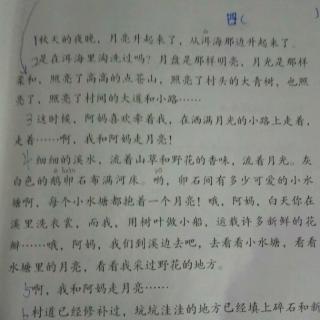 四(
1秋天的夜晚,月亮升起来了,从洱海那边升起来了。
2是在洱海里淘洗过吗?月盘是那样明亮,月光是那样
柔和,照亮了高高的点苍山,照亮了村头的大青树,也照
亮了,照亮了村间的大道和小路……
3这时候,阿妈喜欢牵着我,在洒满月光的小路上走着,
走着……啊,我和阿妈走月亮!
4细细的溪水,流着山草和野花的香味,流着月光。灰
白色的鹅卵石布满河床。哟,卵石间有多少可爱的小水
塘啊,每个小水塘都抱着一个月亮!哦,阿妈,白天你在
溪里洗衣裳,而我,用树叶做小船,运载许多新鲜的花
瓣……哦,阿妈,我们到溪边去吧,去看看小水塘,看看
水塘里的月亮,看看我采过野花的地方。
5啊,我和阿妈走月亮……
6村道已经修补过,坑坑洼洼的地方已经填上碎石和新